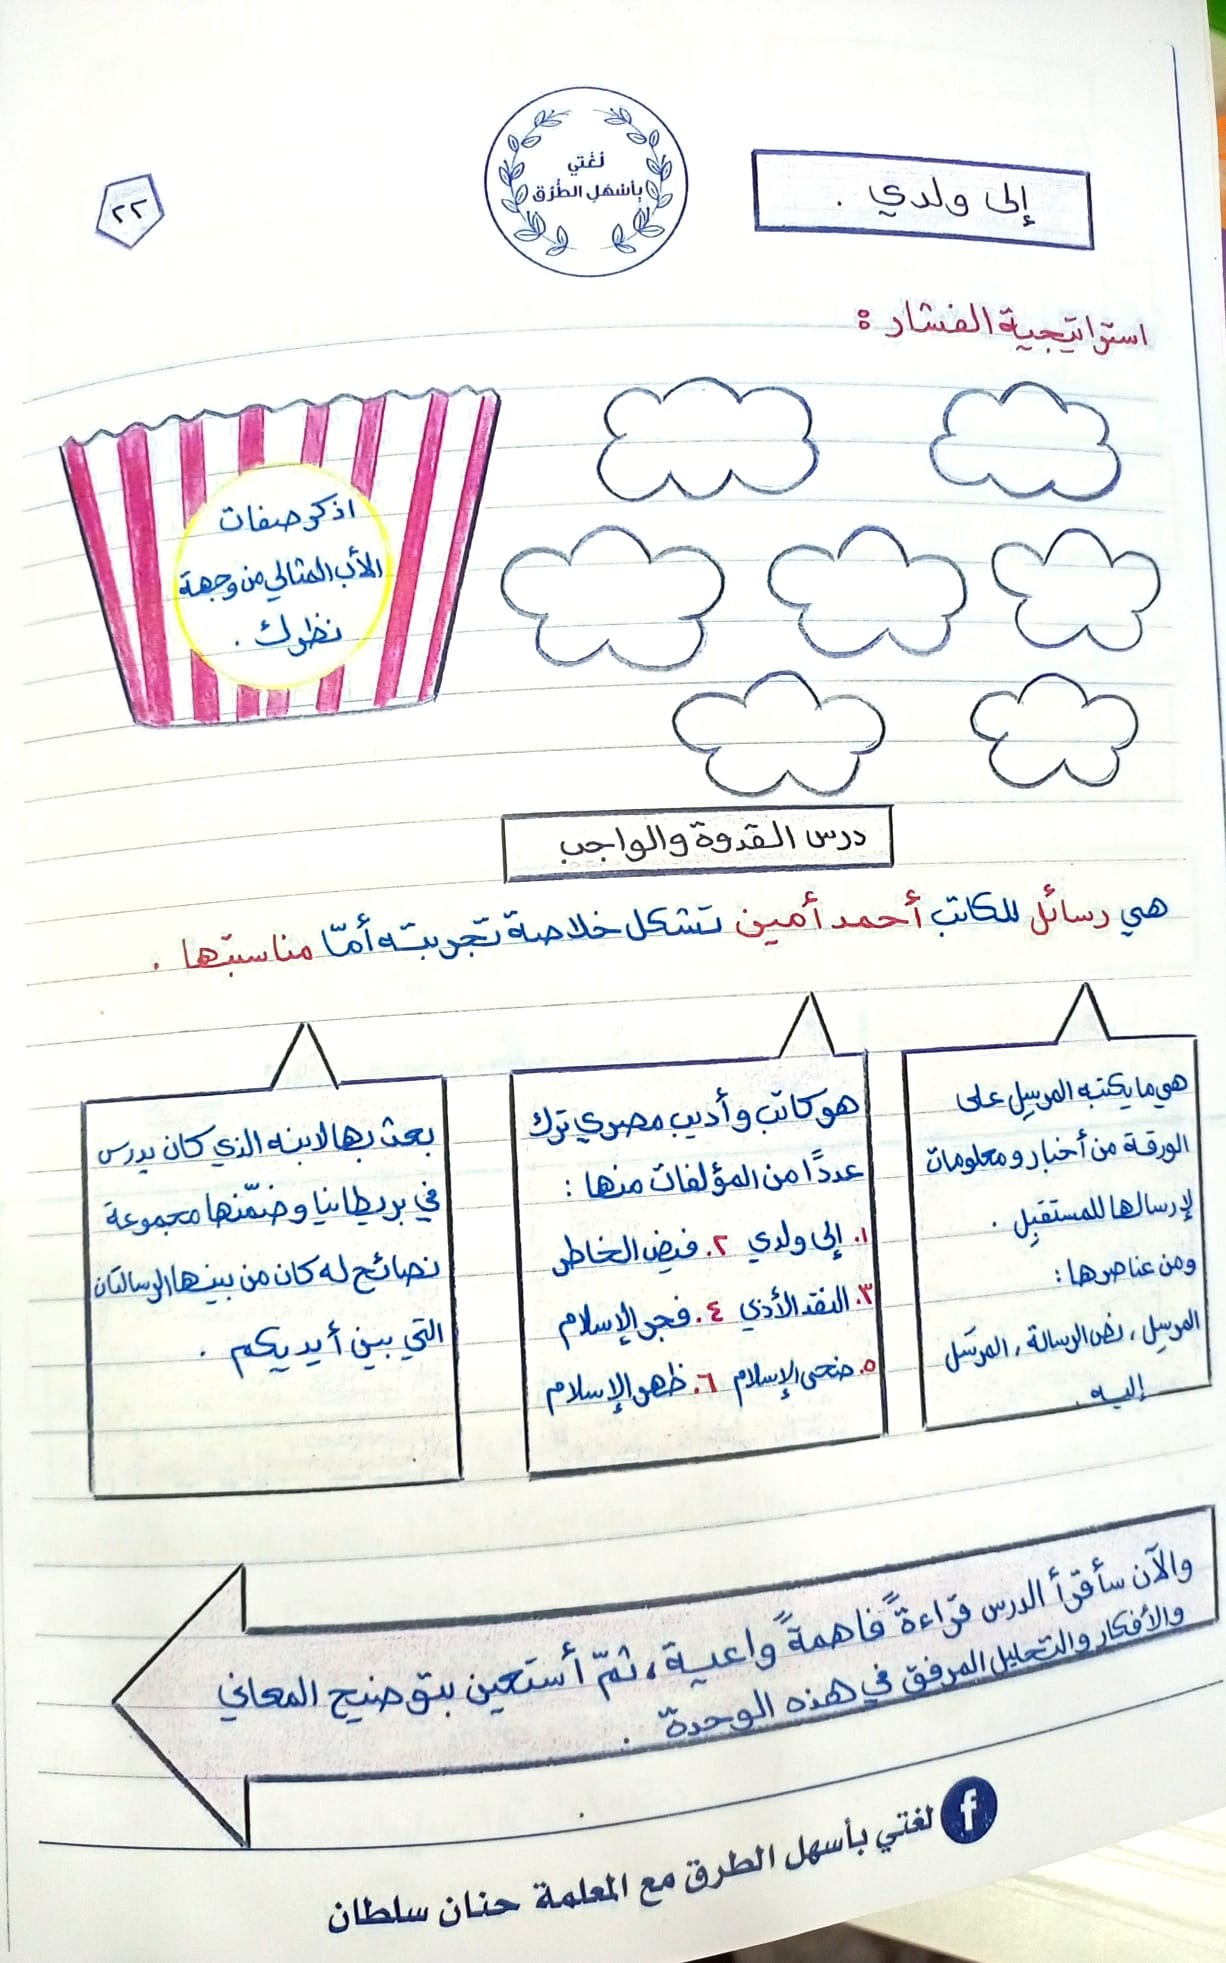 إلى ولدي .
لُغَتي
بِأَسْهَلِ الطُّرُق
٢٢
استراتيجية الفشار :
اذكر صفات
الأب المثالي من وجهة
نظرك .
درس القدوة والواجب
هي رسائل للكاتب أحمد أمين تشكل خلاصة تجربته أمّا مناسبتها .
هي ما يكتبه المرسِل على
الورقة من أخبار ومعلومات
لإرسالها للمستقبِل .
ومن عناصرها :
المرسِل ، نص الرسالة ، المرسَل
إليه .
هو كاتب وأديب مصري ترك
عددًا من المؤلفات منها :
١. إلى ولدي ٢. فيض الخاطر
٣. النقد الأدبي ٤. فجر الإسلام
٥. ضحى الإسلام ٦. ظهر الإسلام
بعث بها لابنه الذي كان يدرس
في بريطانيا وضمّنها مجموعة
نصائح له كان من بينها الرسالتان
التي بين أيديكم .
والآن سأقرأ الدرس قراءةً فاهمةً واعية ، ثمّ أستعين بتوضيح المعاني
والأفكار والتحليل المرفق في هذه الوحدة .
لغتي بأسهل الطرق مع المعلمة حنان سلطان